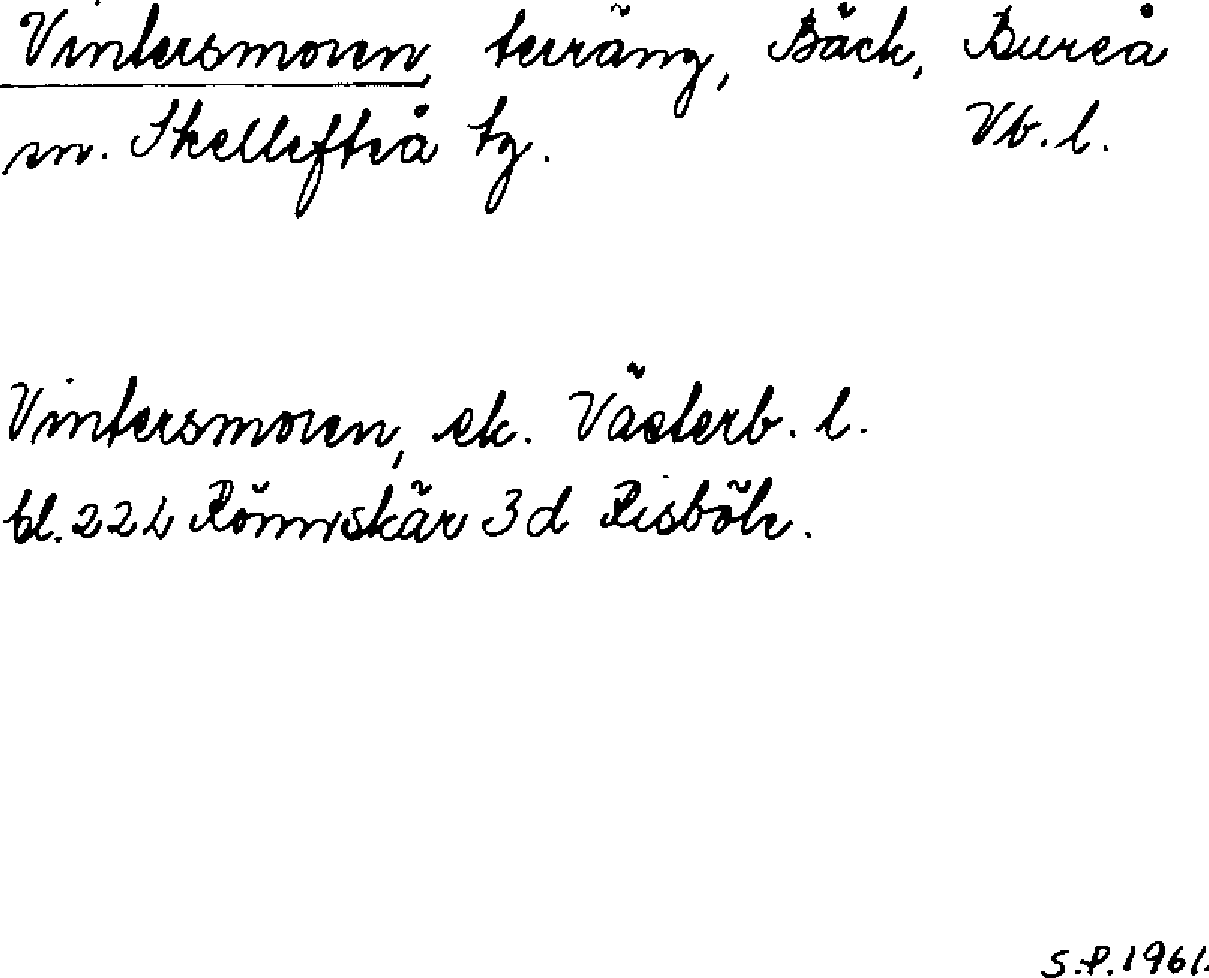 Vintersmoren, terräng, Bäck, Bureå
sn. Skellefteå tg. Vb. l.
Vintersmoren, ek. Västerb. l.
bl. 22 L Rönnskär 3 d Risböle.
S.P. 1961.